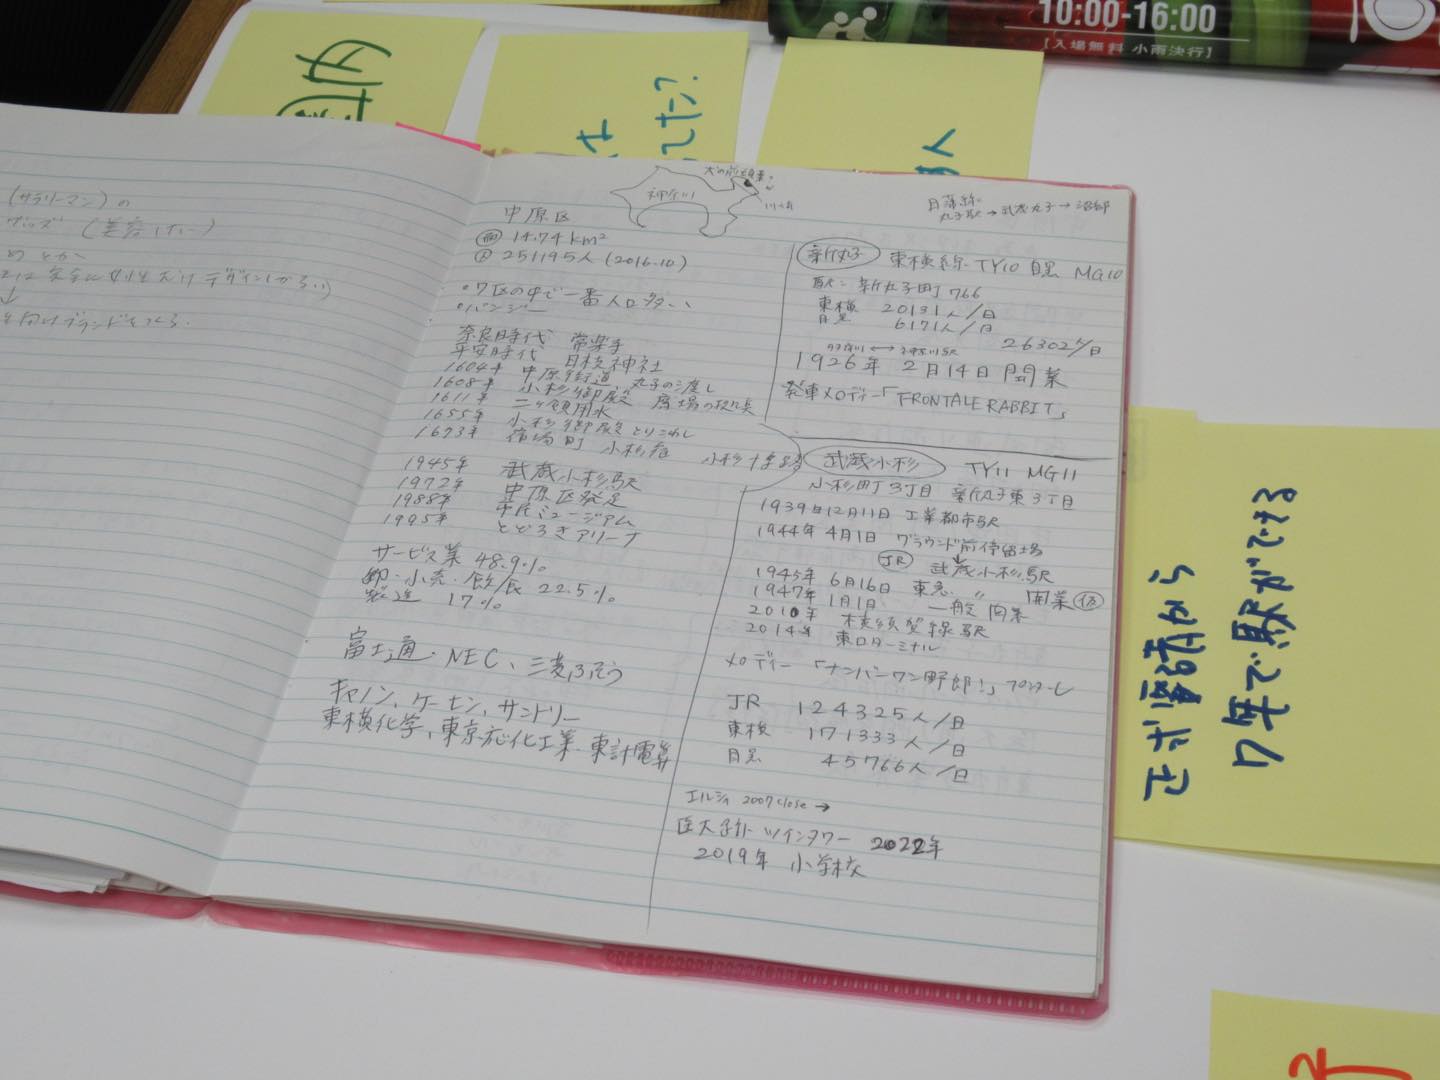 10:00-16:00
【入場無料 小雨決行】
(サラリーマン)の
神奈川
中原区
面 14.74km²
人 251195人 (2016.10)
・7区の中で一番人口多い
・パンジー
奈良時代 常楽寺
平安時代 日枝神社
1604年 中原街道、丸子の渡し
1608年 小杉御殿
1611年 二ヶ領用水
1655年 小杉御殿とりこわし
1673年 宿場町 小杉宿
小杉十字路
1945年 武蔵小杉駅
1972年 中原区発足
1988年 市民ミュージアム
1995年 とどろきアリーナ
サービス業 48.9%
卸・小売・飲食 22.5%
製造 17%
富士通・NEC、三菱ふそう
キヤノン、ケーヒン、サントリー
東横化学、東京応化工業 東計電算
目蒲線
丸子駅→武蔵丸子→沼部
新丸子 東横線 TY10 目黒 MG10
駅：新丸子町766
東横 20131人/日
目黒 6171人/日
26302人/日
1926年 2月14日 開業
発車メロディー「FRONTALE RABBIT」
武蔵小杉 TY11 MG11
小杉町3丁目 新丸子東3丁目
1939年12月11日 工業都市駅
1944年 4月1日 グラウンド前停留場
JR 武蔵小杉駅
1945年 6月16日 東急 〃 開業(仮)
1947年 1月1日 一般開業
2010年 横須賀線駅
2014年 東口ターミナル
メロディー「ナンバーワン野郎!」フロンターレ
JR 124325人/日
東横 171333人/日
目黒 45766人/日
エルシィ 2007 close →
医大予定 ツインタワー 2022年
2019年 小学校
正式要請から
7年で駅ができる